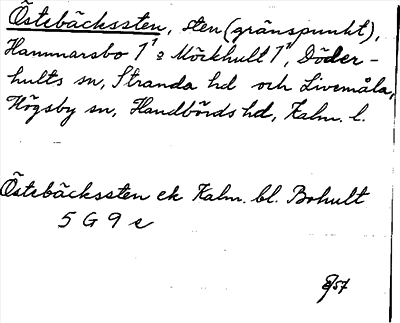 Östebäckssten, sten (gränspunkt),
Hammarsbo 1¹ o Möckhult 1¹, Döder-
hults sn, Stranda hd och Livemåla,
Högsby sn, Handbörds hd, Kalm. l.
Östebäckssten ek Kalm. bl. Bohult
5 G 9 e
/57